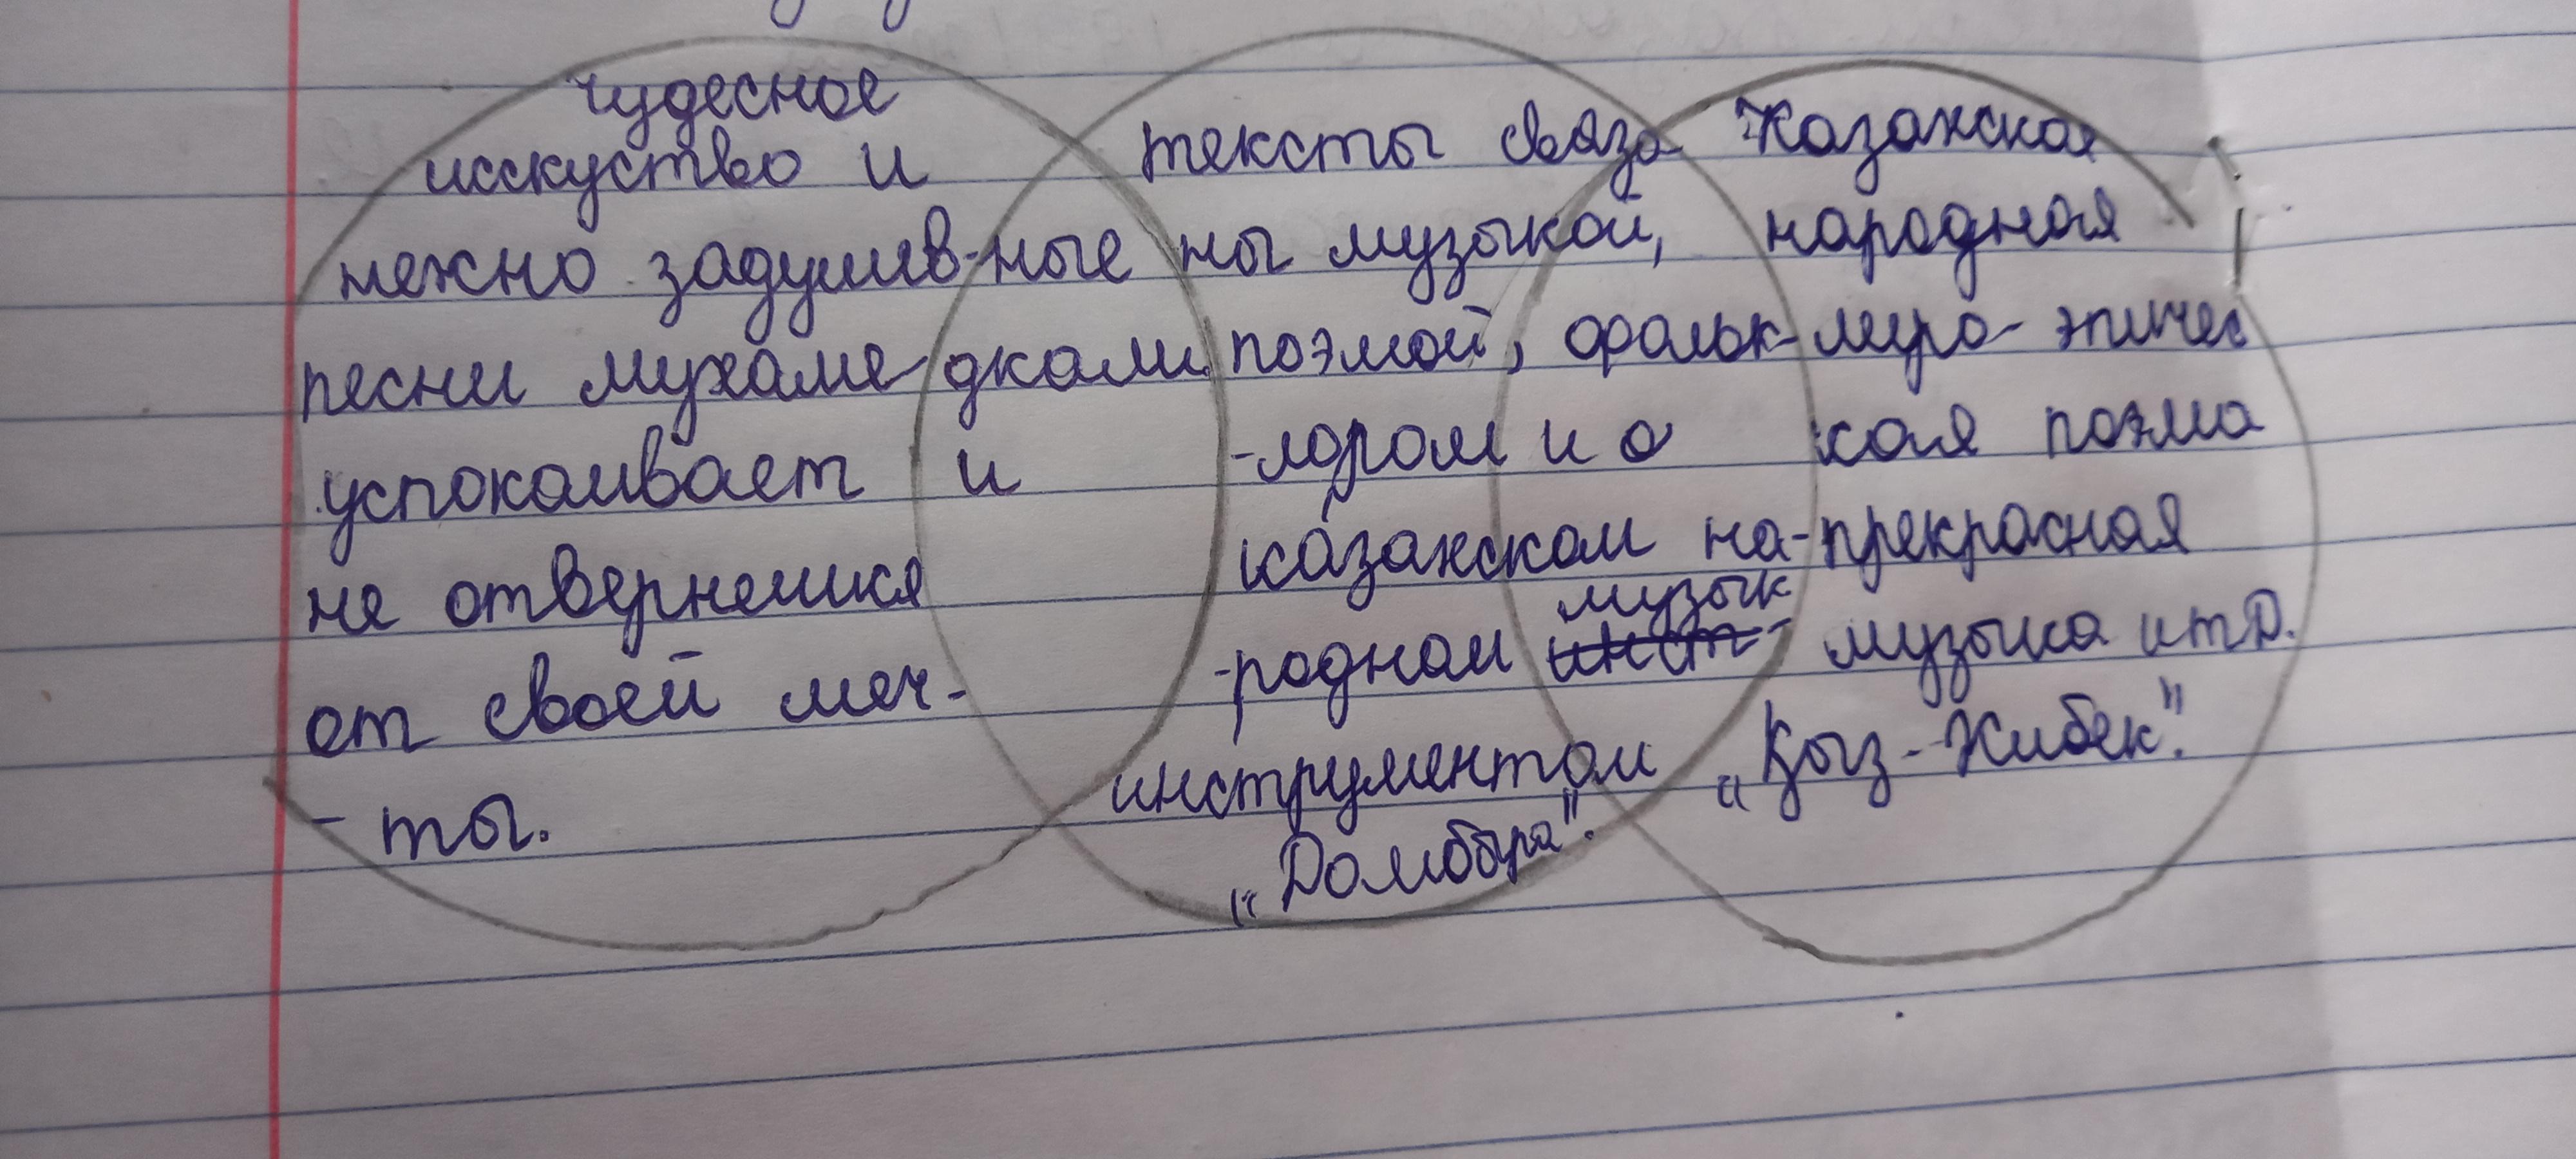 чудесное
исскуство и
нежно задушев-ные
песни мухаме дкали
успокаивает и
не отвернешся
от своей меч-
- ты.
тексты связа
ны музыкой,
поэмой, фольк-
-лором и о
казахском на-
-родном музык
инст-
инструментом
„Домбыра".
Казахская
народная
лиро-эпичес
кая поэма
прекрасная
музыка итд.
„Қыз-Жибек".